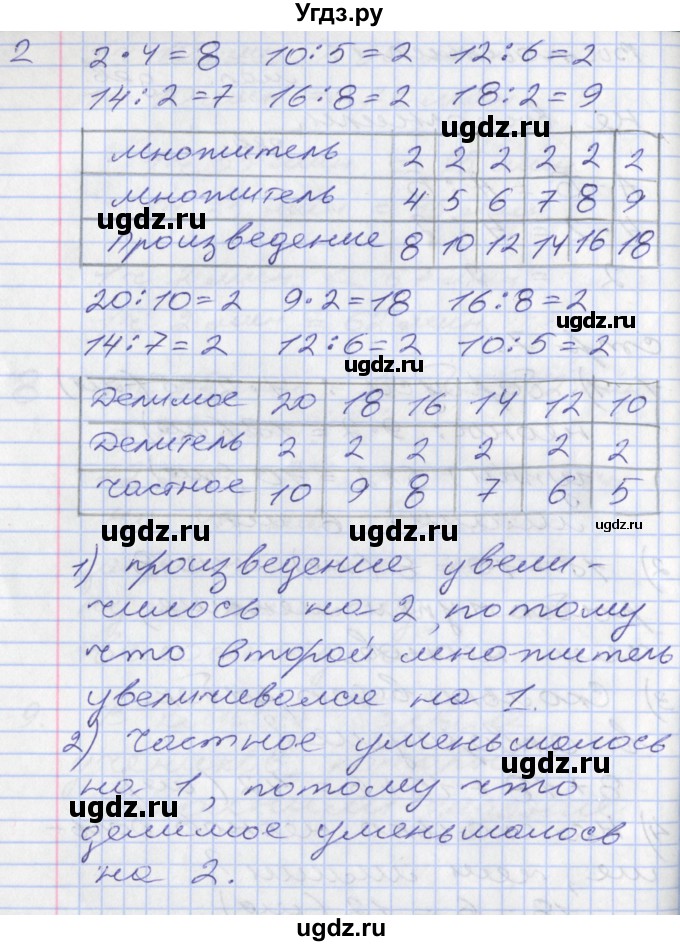 Угдз.ру
2 2·4=8 10:5=2 12:6=2
14:2=7 16:8=2 18:2=9
ugdz.ru
множитель 2 2 2 2 2 2
множитель 4 5 6 7 8 9
ugdz.ru
Произведение 8 10 12 14 16 18
20:10=2 9·2=18 16:8=2
ugdz.ru
14:7=2 12:6=2 10:5=2
Делимое 20 18 16 14 12 10
Делитель 2 2 2 2 2 2
частное 10 9 8 7 6 5
ugdz.ru ugdz.ru
1) произведение увели-
чилось на 2, потому
что второй множитель
увеличивался на 1.
ugdz.ru
2) частное уменьшалось
ugdz.ru
на 1, потому что
ugdz.ru
делимое уменьшалось
на 2.
ugdz.ru